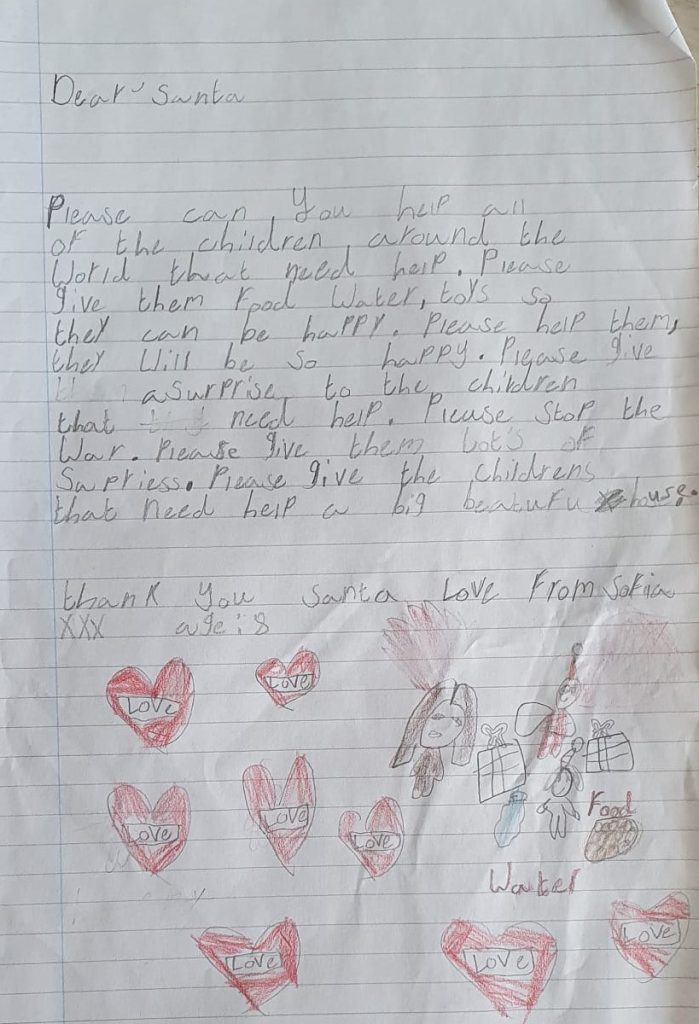 Dear Santa
Please can you help all
of the children around the
World that need help. Please
give them food Water, toys so
they can be happy. Please help them,
they Will be so happy. Please give
a surprise to the children
that need help. Please stop the
War. Please give them lots of
Supriess. Please give the childrens
that need help a big beatufu house.
thank you santa Love From Sofia
XXX age is 8
Love
Love
Love
Love
Love
Food
Water
Love
Love
Love